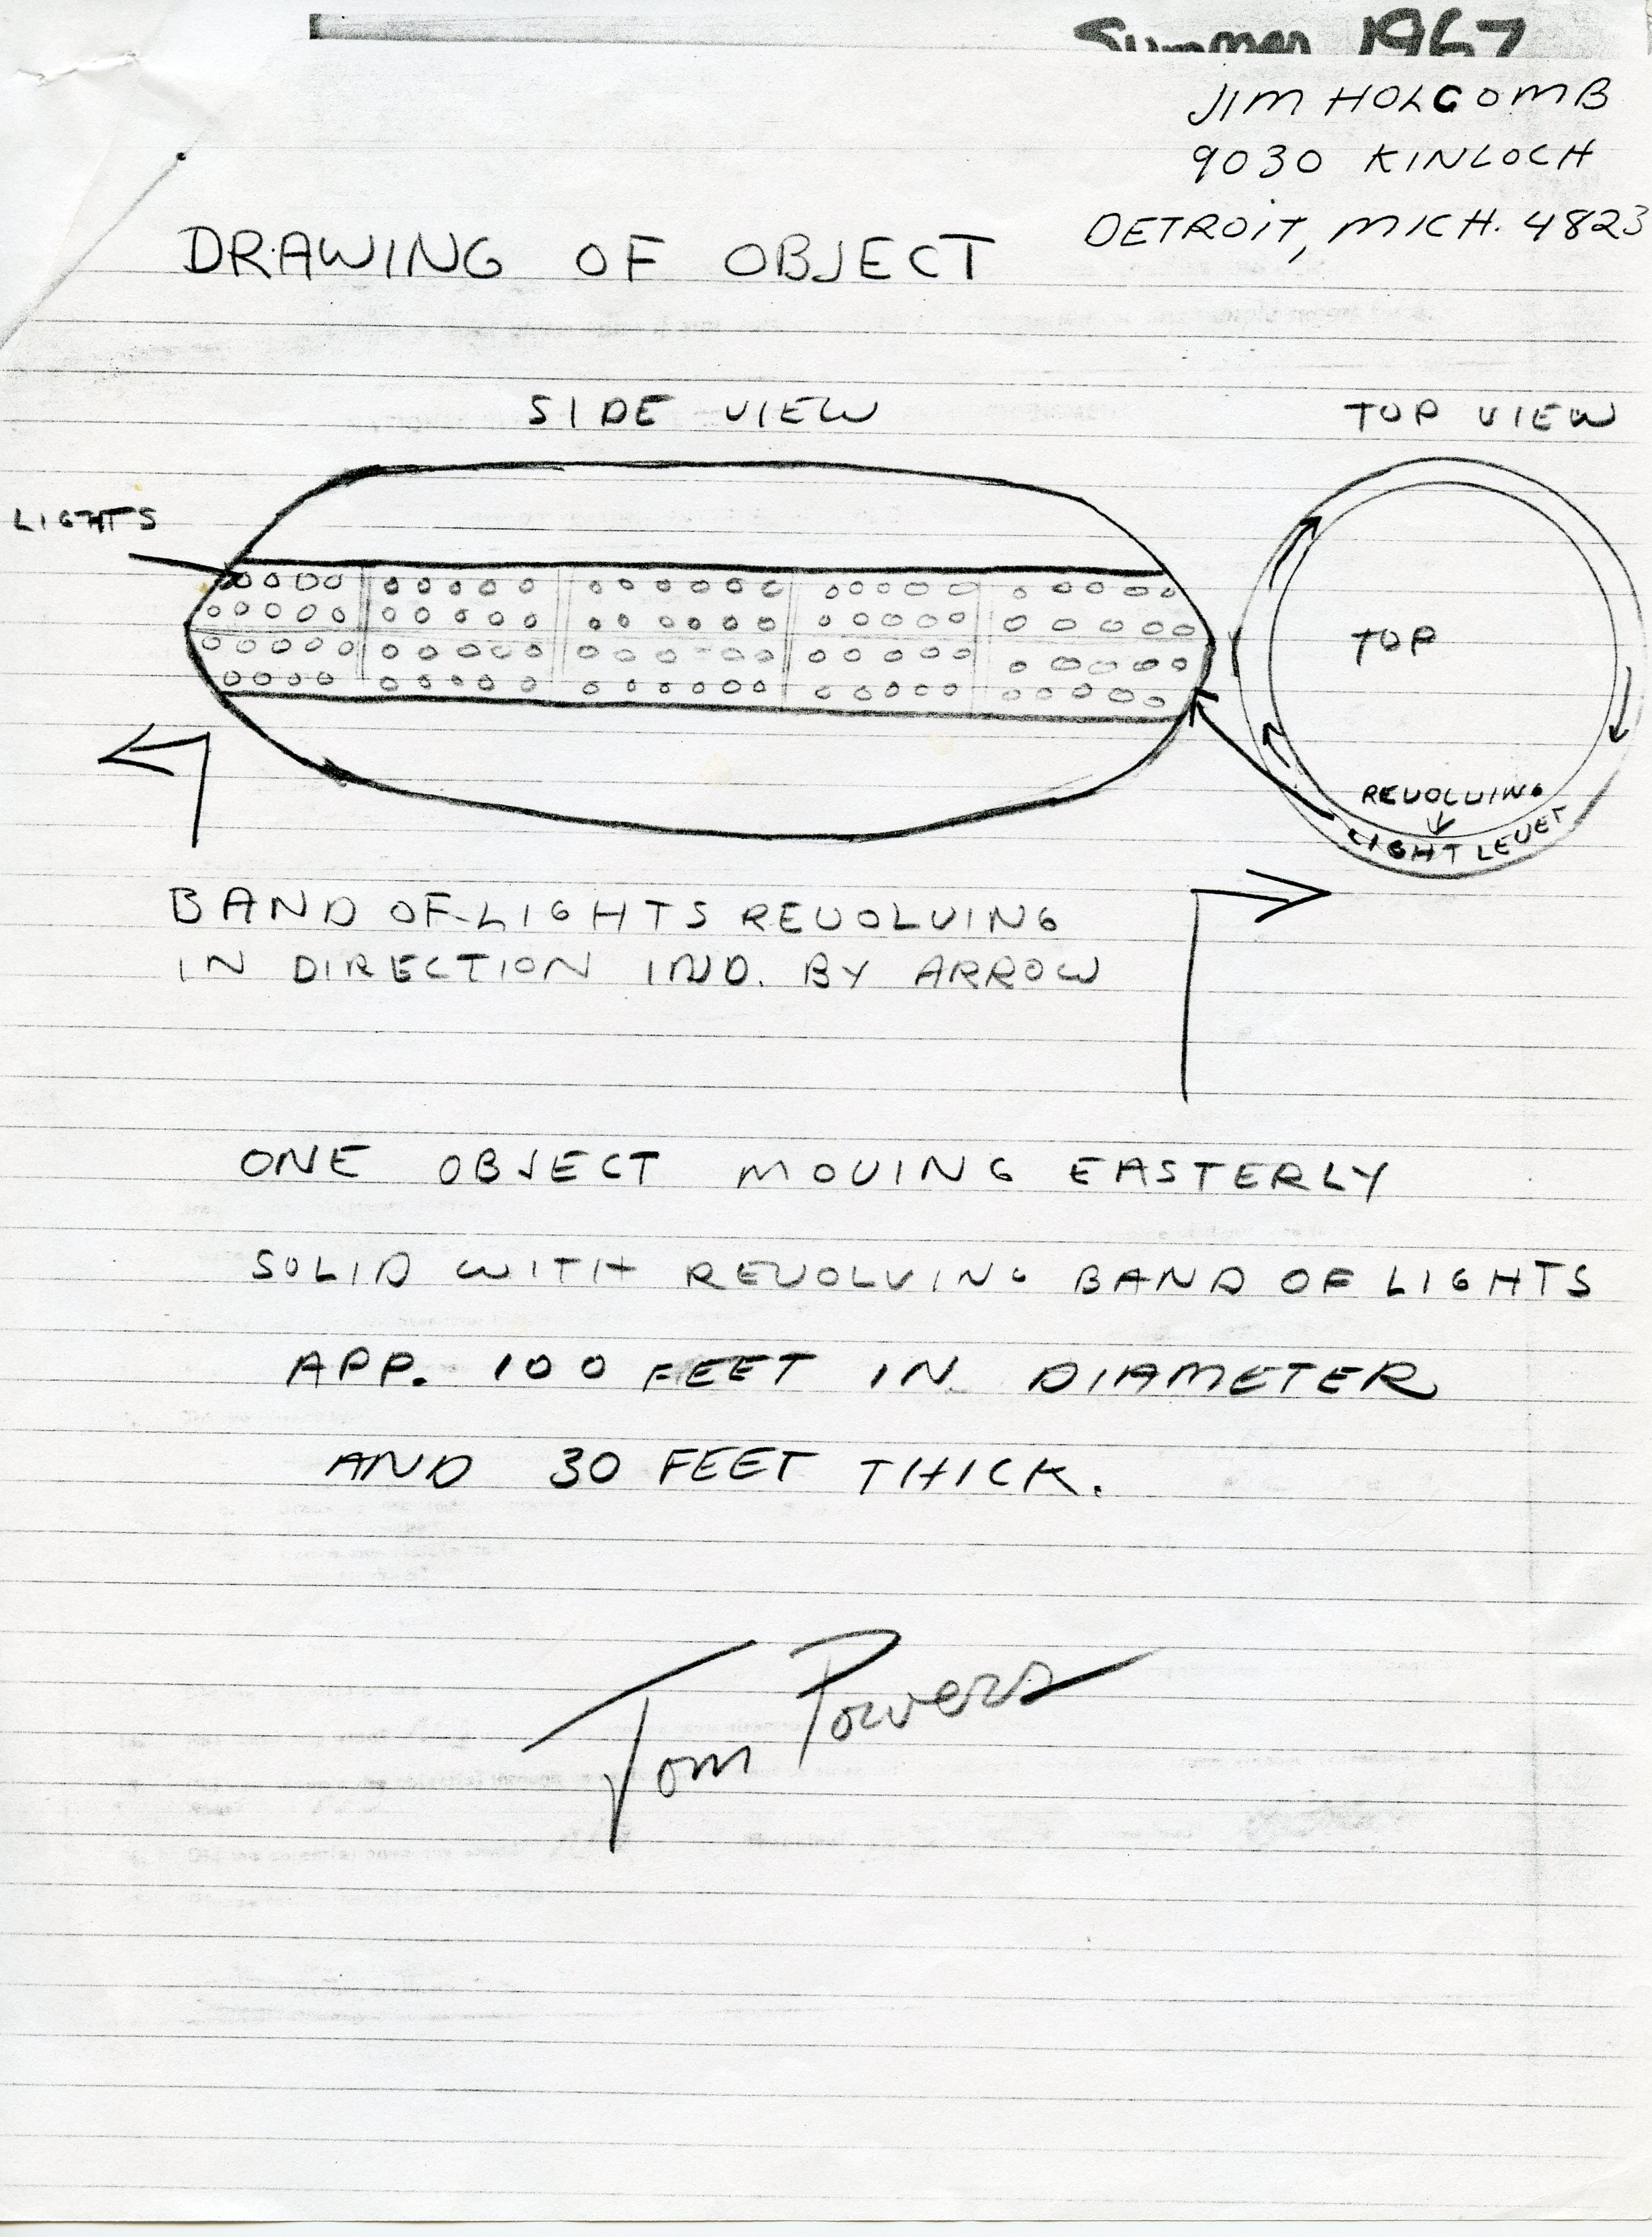 Summer 1967
JIM HOLCOMB
9030 KINLOCH
DETROIT, MICH. 4823
DRAWING OF OBJECT
SIDE VIEW
TOP VIEW
LIGHTS
TOP
REVOLVING
LIGHT LEVEL
BAND OF LIGHTS REVOLVING
IN DIRECTION IND. BY ARROW
ONE OBJECT MOVING EASTERLY
SOLID WITH REVOLVING BAND OF LIGHTS
APP. 100 FEET IN DIAMETER
AND 30 FEET THICK.
Tom Powers